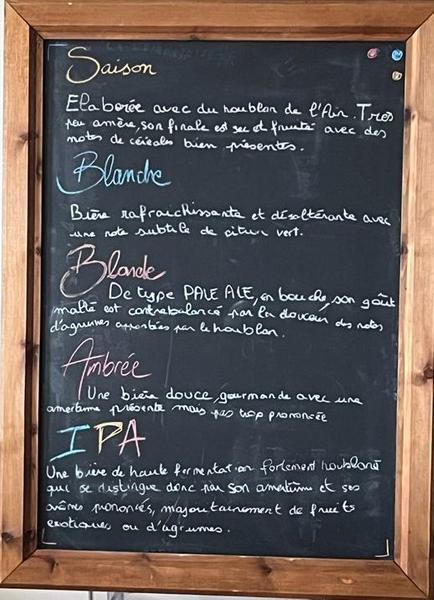 Saison
Elaborée avec du houblon de l'Ain. Tres
peu amère, son finale est sec et fruité avec des
notes de céréales bien présentes.
Blanche
Bière rafraichissante et désaltérante avec
une note subtile de citron vert.
Blonde
De type PALE ALE, en bouche, son goût
malté est contrebalancé par la douceur des notes
d'agrumes apportées par le houblon.
Ambrée
Une bière douce, gourmande avec une
amertume présente mais pas trop prononcée
IPA
Une bière de haute fermentation fortement houblonné
qui se distingue donc par son amertume et ses
arômes prononcés, majoutairement de fruits
exotiques ou d'agrumes.